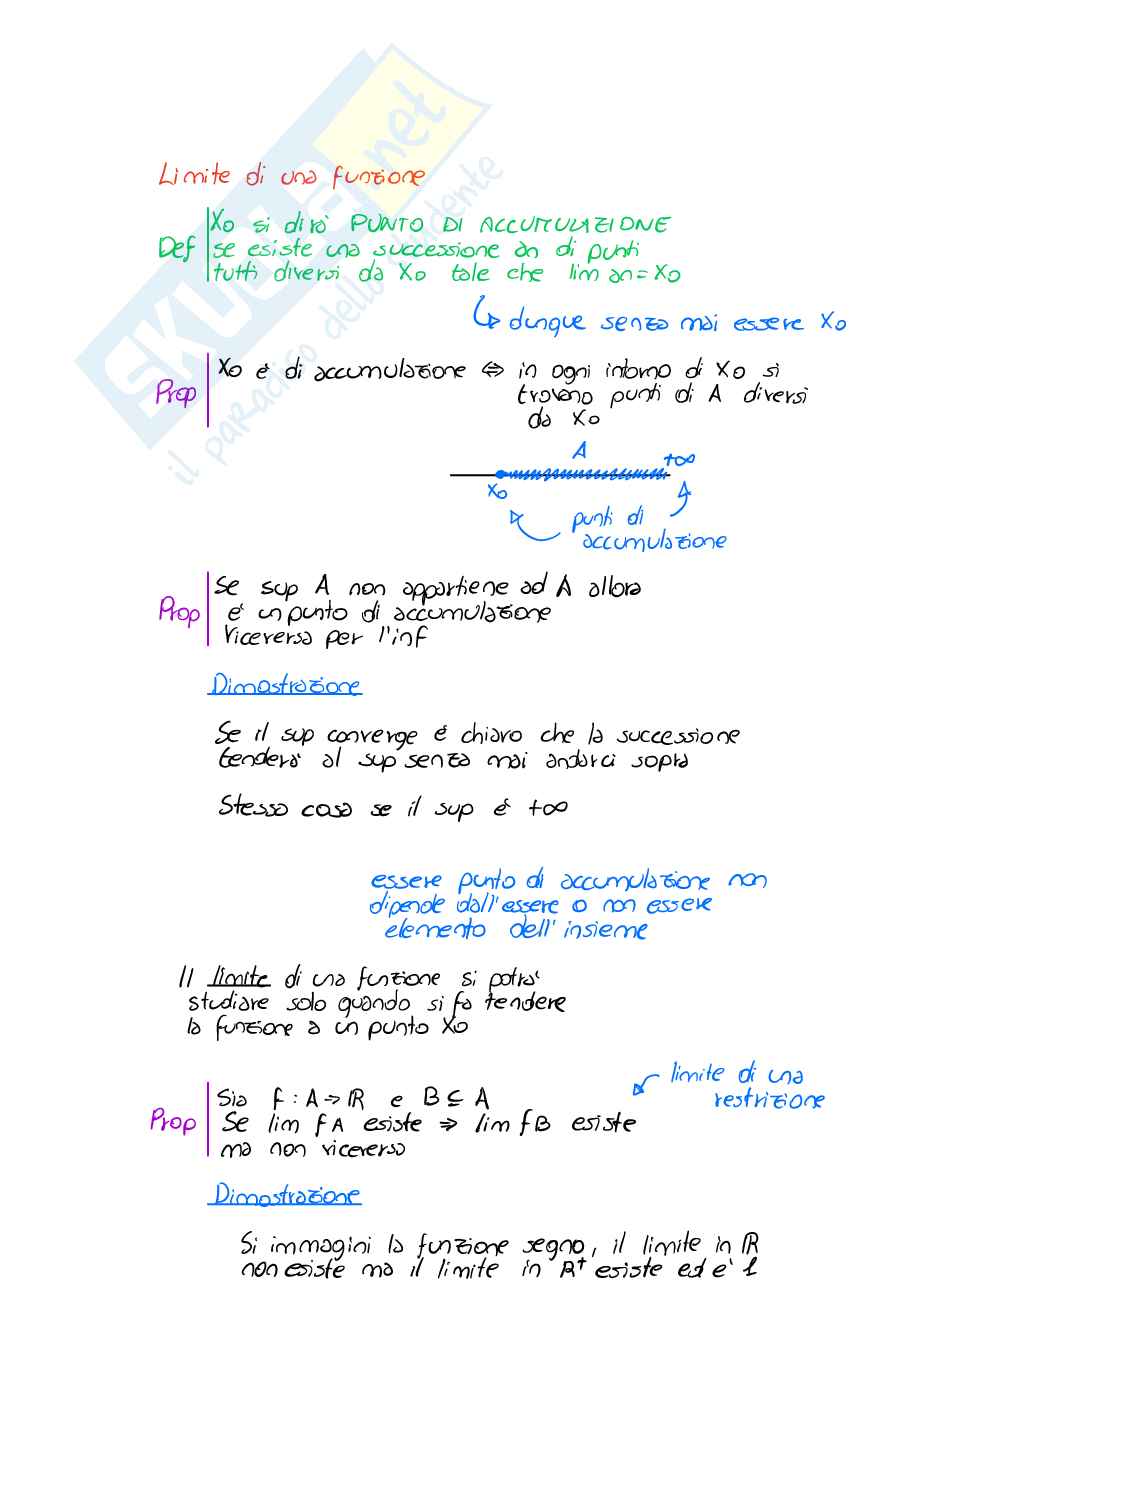 SKUOLA.net
il paradiso dello studente
Limite di una funzione
Def
X₀ si dirà PUNTO DI ACCUMULAZIONE
se esiste una successione an di punti
tutti diversi da X₀ tale che lim an = X₀
↳ dunque senza mai essere X₀
Prop
X₀ è di accumulazione ⇔ in ogni intorno di X₀ si
trovano punti di A diversi
da X₀
A
+∞
X₀
punti di
accumulazione
Prop
Se sup A non appartiene ad A allora
è un punto di accumulazione
Viceversa per l'inf
Dimostrazione
Se il sup converge è chiaro che la successione
tenderà al sup senza mai andarci sopra
Stessa cosa se il sup è +∞
essere punto di accumulazione non
dipende dall'essere o non essere
elemento dell'insieme
Il limite di una funzione si potrà
studiare solo quando si fa tendere
la funzione a un punto X₀
limite di una
restrizione
Prop
Sia f : A → ℝ e B ⊆ A
Se lim fA esiste ⇒ lim fB esiste
ma non viceversa
Dimostrazione
Si immagini la funzione segno, il limite in ℝ
non esiste ma il limite in ℝ⁺ esiste ed è 1